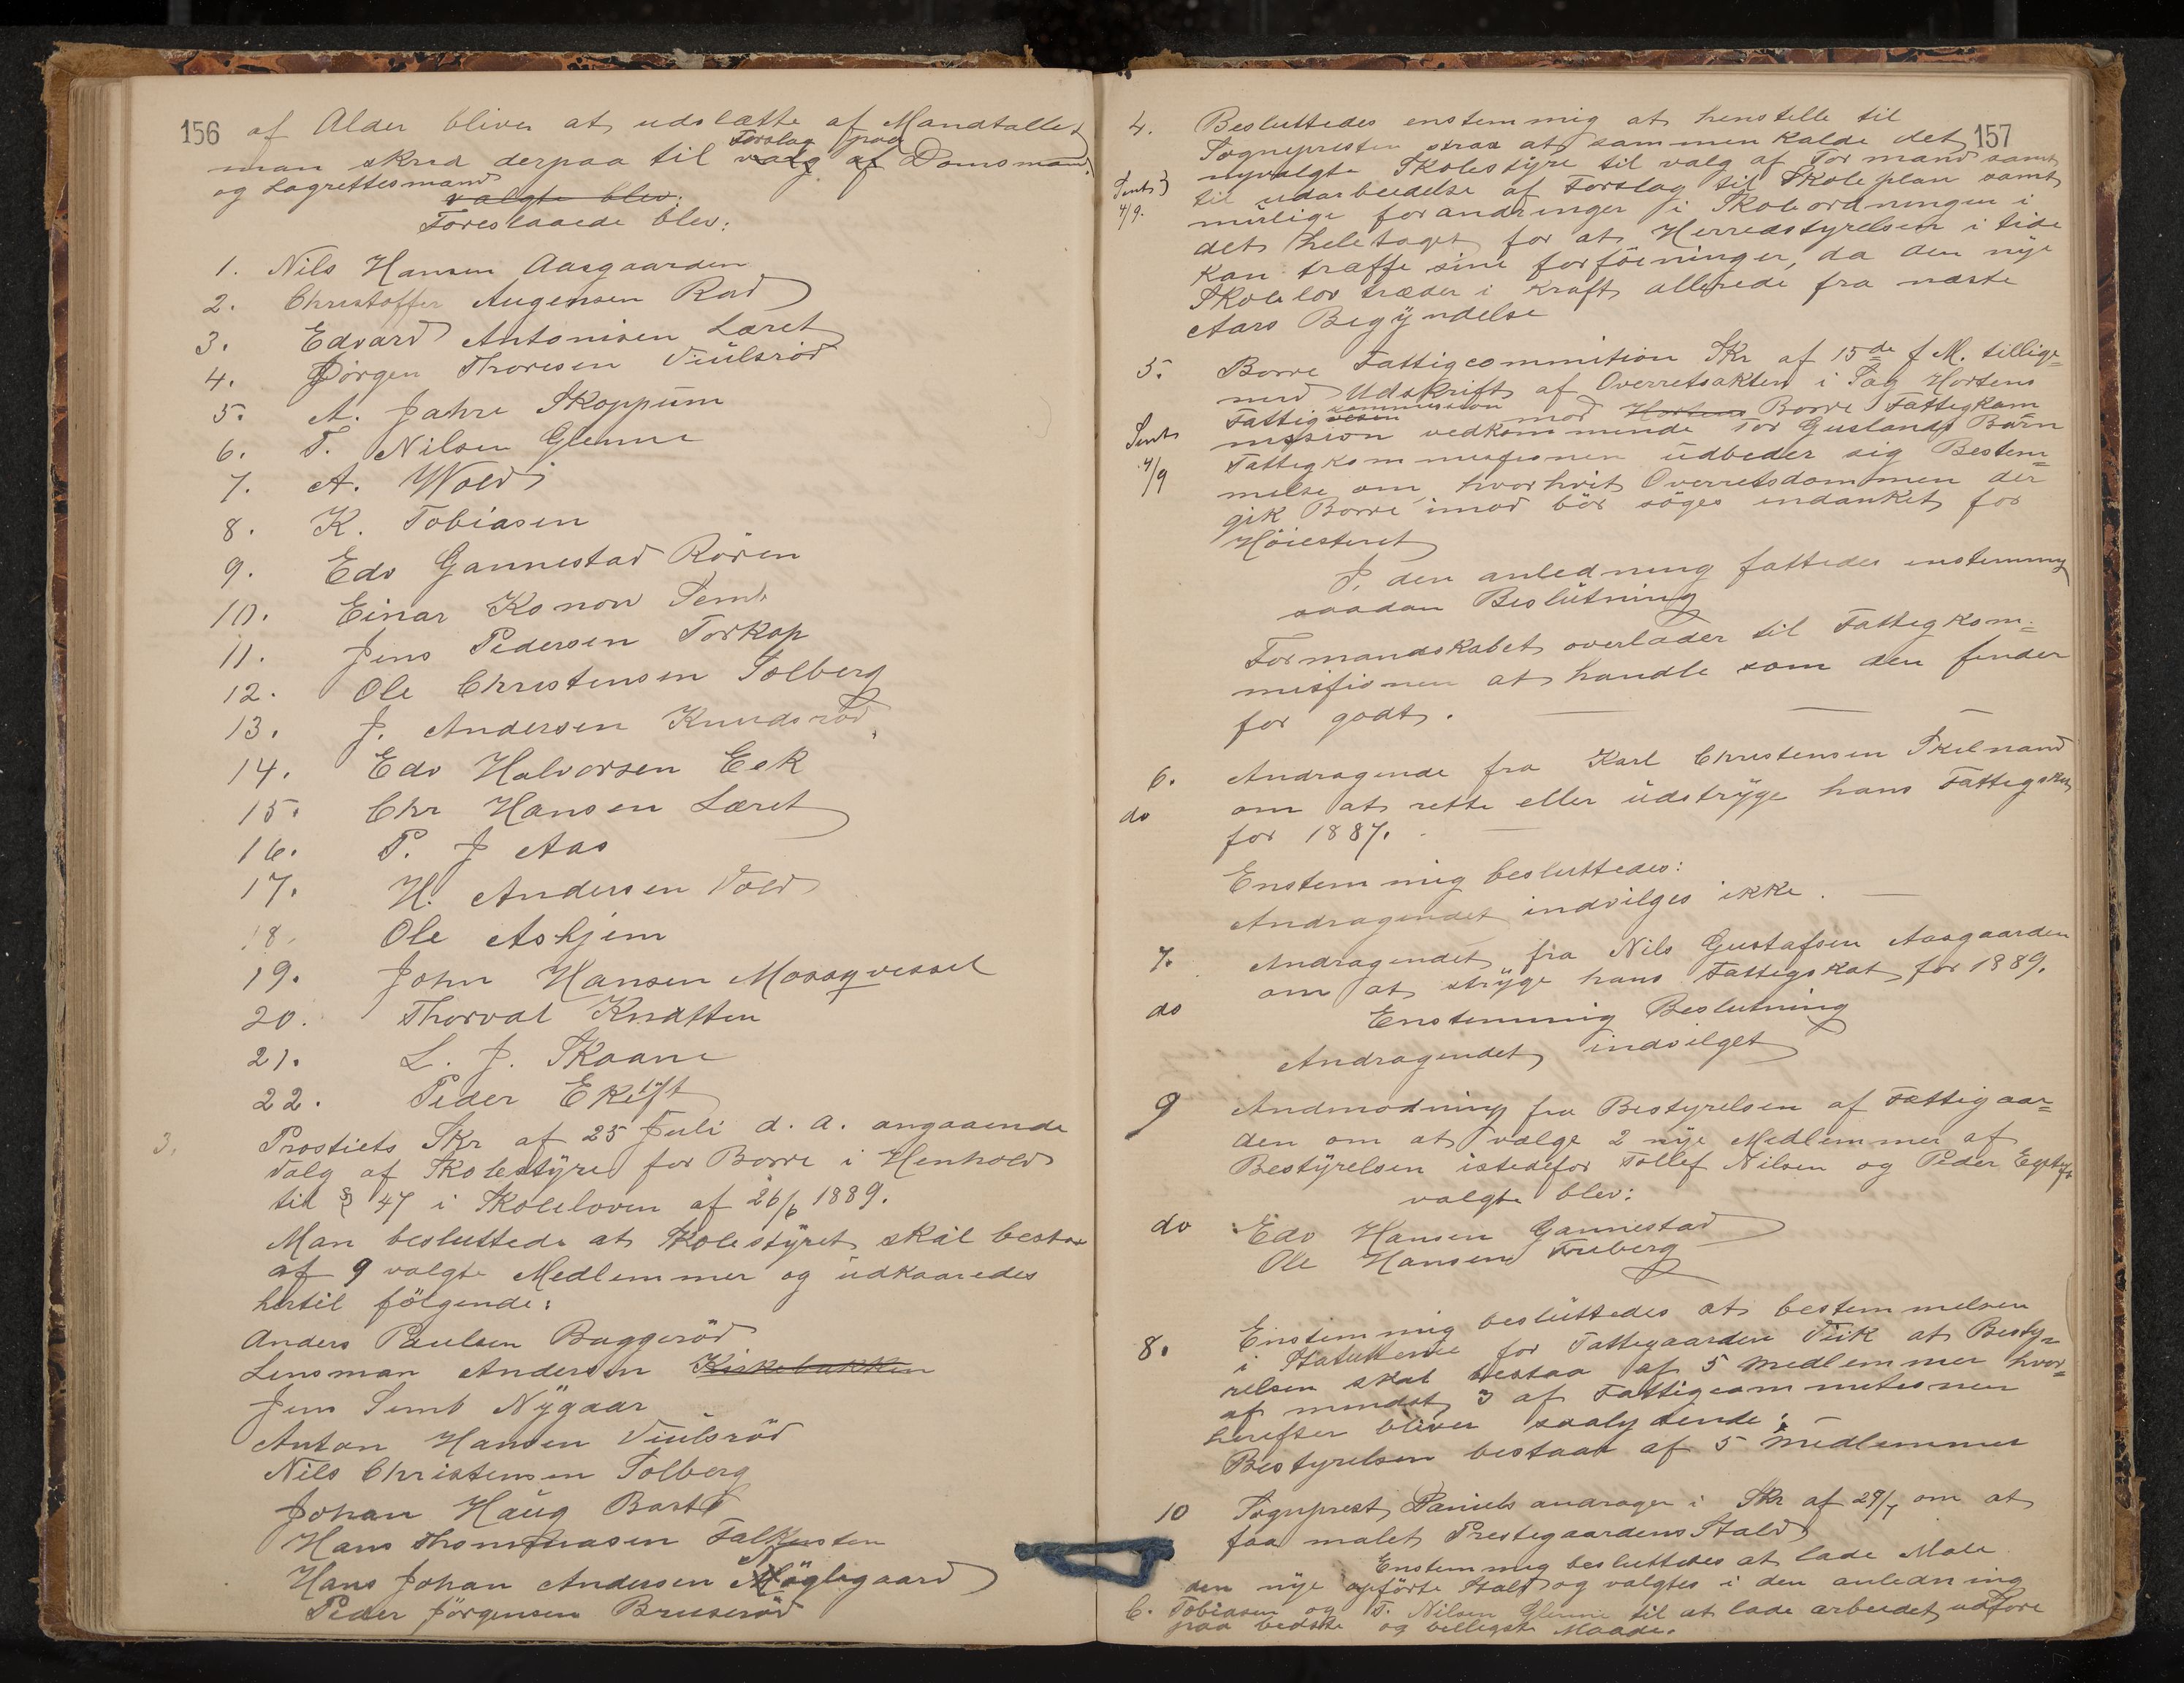 156
af Alder bliver at udslætte af Mandtallet
Forslag paa
man skred derpaa til valg af Domsmænd
og Lagrettesmænd
valgte blev:
Foreslaaede blev:
1. Nils Hansen Aasgaarden
2. Christoffer Augensen Rød
3. Edvard Antonisen Læret
4. Jörgen Thoresen Viulsröd
5. A. Jahre Skoppum
6. T. Nilsen Glenne
7. A. Wold
8. K. Tobiasen
9. Edv Gannestad Rören
10. Einar Konow Semb
11. Jens Pedersen Torkop
12. Ole Christensen Solberg
13. J. Andersen Knudsröd
14. Edv Halvorsen Eek
15. Chr Hansen Læret
16. P. J Aas
17. H. Andersen Vold
18. Ole Askjem
19. John Hansen Mossqvessel
20. Thorval Knatten
21. L. J. Skaane
22. Peder Ektvft
3. Provstiets Skr af 25 Juli d. A. angaaende
Valg af Skolestyre for Borre i Henhold
til § 47 i Skoleloven af 26/6 1889.
Man besluttede at Skolestyret skal bestaa
af 9 valgte Medlemmer og udkaaredes
hertil fölgende:
Anders Paulsen Baggeröd
Lensman Andersen Kirkebakken
Jens Semb Nygaar
Anton Hansen Viulsröd
Nils Christensen Solberg
Johan Haug Bastö
Hans Thommasen Falkensten
Hans Johan Andersen Möglegaard
Peder Jörgensen Bruseröd
157
4. Besluttedes enstemmig at henstille til
Sognepresten strax at sammenkalde det
nyvalgte Skolestyre til valg af Formand samt
Sent 4/9.
til udarbeidelse af Forslag til Skoleplan samt
mulige forandringer i Skoleordningen i
det heletaget for at Herredstyrelsen i tide
kan træffe sine forföininger, da den nye
Skolelov træder i kraft allerede fra næste
Aars Begyndelse
5. Borre Fattigcommition Skr af 15de f M. tillige=
med Udskrift af Overretsakten i Sag Hortens
kommission
Fattigvesen mod Hortens Borre Fattigkom
Sent 4/9
mission vedkommende Tor Guslands Börn
Fattigkommissionen udbeder sig Bestem=
melse om, hvorhvit Overretsdommen der
gik Borre imod bör söges indanket for
Höiesteret
I den anledning fattedes enstemmig
saadan Beslutning
Formandskabet overlader til Fattigkom=
missionen at handle som den finder
for godt.
6. Andragende fra Karl Christensen Skilnand
do
om at rette eller udstryge hans Fattigskat
for 1887.
Enstemmig besluttedes:
Andragendet indvilges ikke.
7. Andragendet fra Nils Gustafsen Aasgaarden
om at stryge hans Fattigskat for 1889.
do
Enstemmig Beslutning
Andragendet indvilget
9 Andmodning fra Bestyrelsen af Fattiggaar=
den om at vælge 2 nye Medlemmer af
Bestyrelsen istedefor Tollef Nilsen og Peder
valgte blev:
do
Edv Hansen Gannestad
Ole Hansen Freberg
8. Enstemmig besluttedes at bestemmelsen
i Statutterne for Fattegaarden Viik at Besty=
relsen skal bestaa af 5 Medlemmer hvor=
af mindst 3 af Fattigcommitionen
herefter bliver saalydende:
Bestyrelsen bestaar af 5 Medlemmer
10 Sognprest Daniels andrager i Skr af 29/7 om at
faa malet Prestegaardens Stald
Enstemmig besluttedes at lade Male
den nye opförte Stald og valgtes i den anledning
C. Tobiasen og T. Nilsen Glenne til at lade arbeidet udföre
paa bedste og billigste Maade.